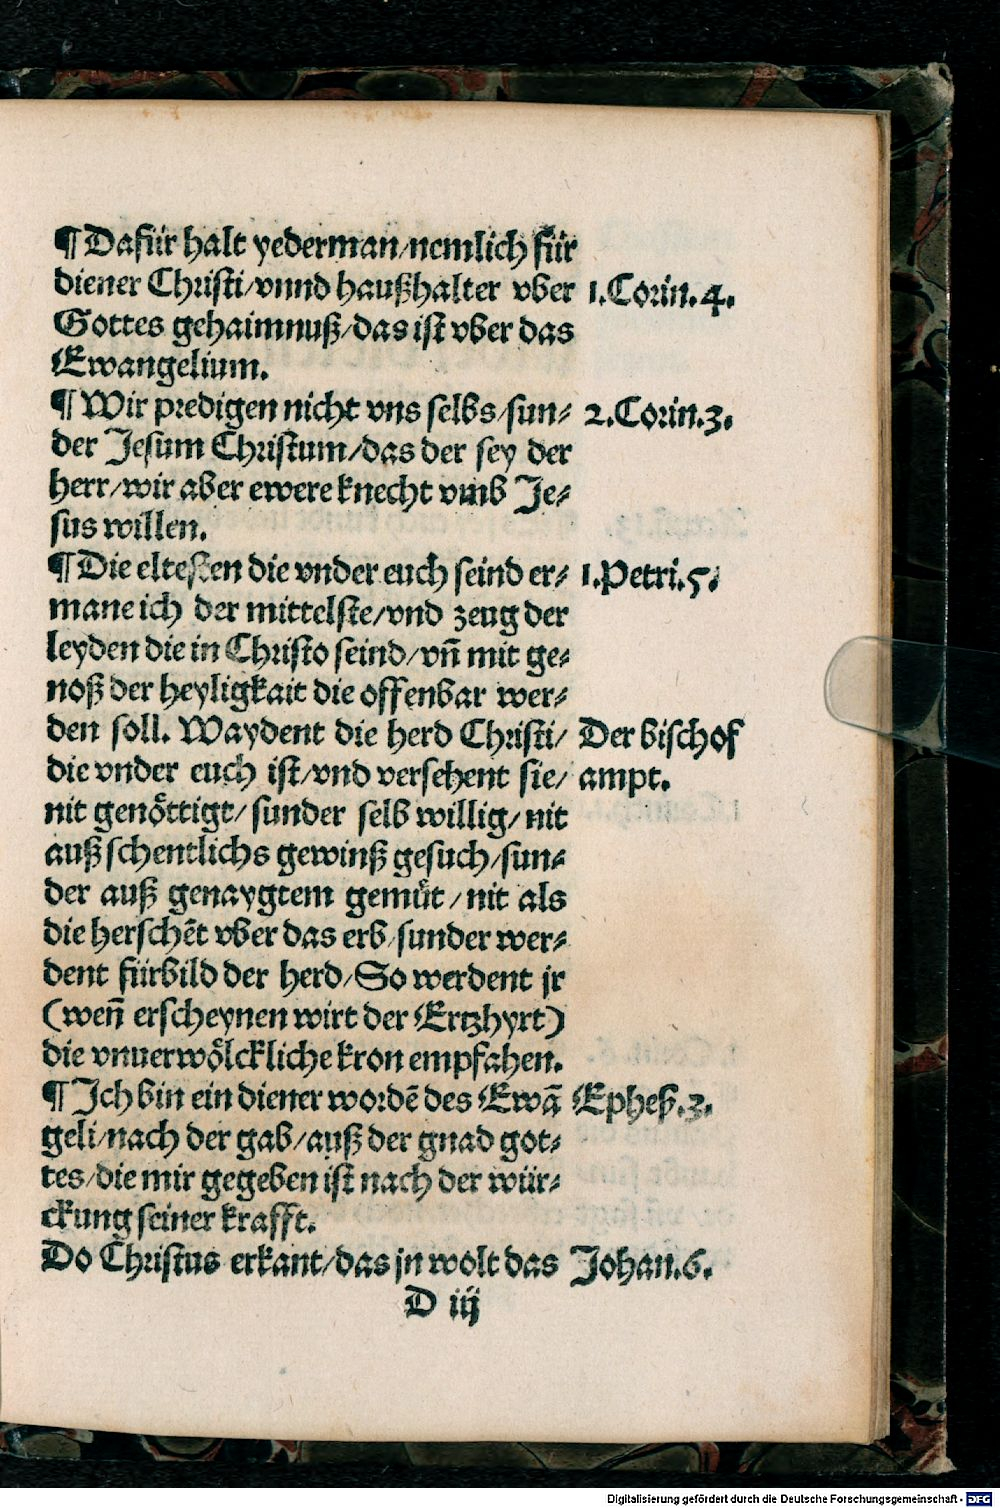 ¶ Dafür halt yederman/nemlich für
diener Christi/vnnd haußhalter vber
1.Corin.4.
Gottes gehaimnuß/das ist vber das
Ewangelium.
¶ Wir predigen nicht vns selbs/sun⸗
2.Corin.3.
der Jesum Christum/das der sey der
herr/wir aber ewere knecht vmb Je⸗
sus willen.
¶ Die eltesten die vnder euch seind er⸗
1.Petri.5.
mane ich der mittelste/vnd zeug der
leyden die in Christo seind/vñ mit ge⸗
noß der heyligkait die offenbar wer⸗
den soll. Waydent die herd Christi/
Der bischof
die vnder euch ist/vnd versehent sie/
ampt.
nit genöttigt/sunder selb willig/nit
auß schentlichs gewinß gesuch/sun⸗
der auß genaygtem gemüt/nit als
die herschēt vber das erb/sunder wer⸗
dent fürbild der herd/So werdent jr
(weñ erscheynen wirt der Ertzhyrt)
die vnuerwölckliche kron empfahen.
¶ Ich bin ein diener wordē des Ewā
Ephes.3.
geli/nach der gab/auß der gnad got⸗
tes/die mir gegeben ist nach der wür⸗
ckung seiner krafft.
Do Christus erkant/das jn wolt das
Johan.6.
D iij
Digitalisierung gefördert durch die Deutsche Forschungsgemeinschaft - DFG